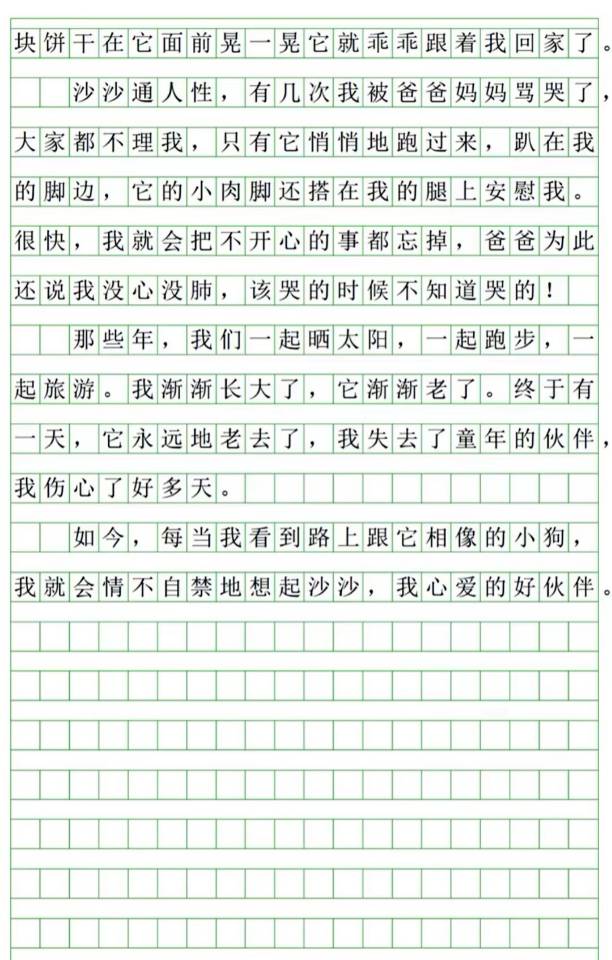 块饼干在它面前晃一晃它就乖乖跟着我回家了。
沙沙通人性，有几次我被爸爸妈妈骂哭了，
大家都不理我，只有它悄悄地跑过来，趴在我
的脚边，它的小肉脚还搭在我的腿上安慰我。
很快，我就会把不开心的事都忘掉，爸爸为此
还说我没心没肺，该哭的时候不知道哭的！
那些年，我们一起晒太阳，一起跑步，一
起旅游。我渐渐长大了，它渐渐老了。终于有
一天，它永远地老去了，我失去了童年的伙伴，
我伤心了好多天。
如今，每当我看到路上跟它相像的小狗，
我就会情不自禁地想起沙沙，我心爱的好伙伴。